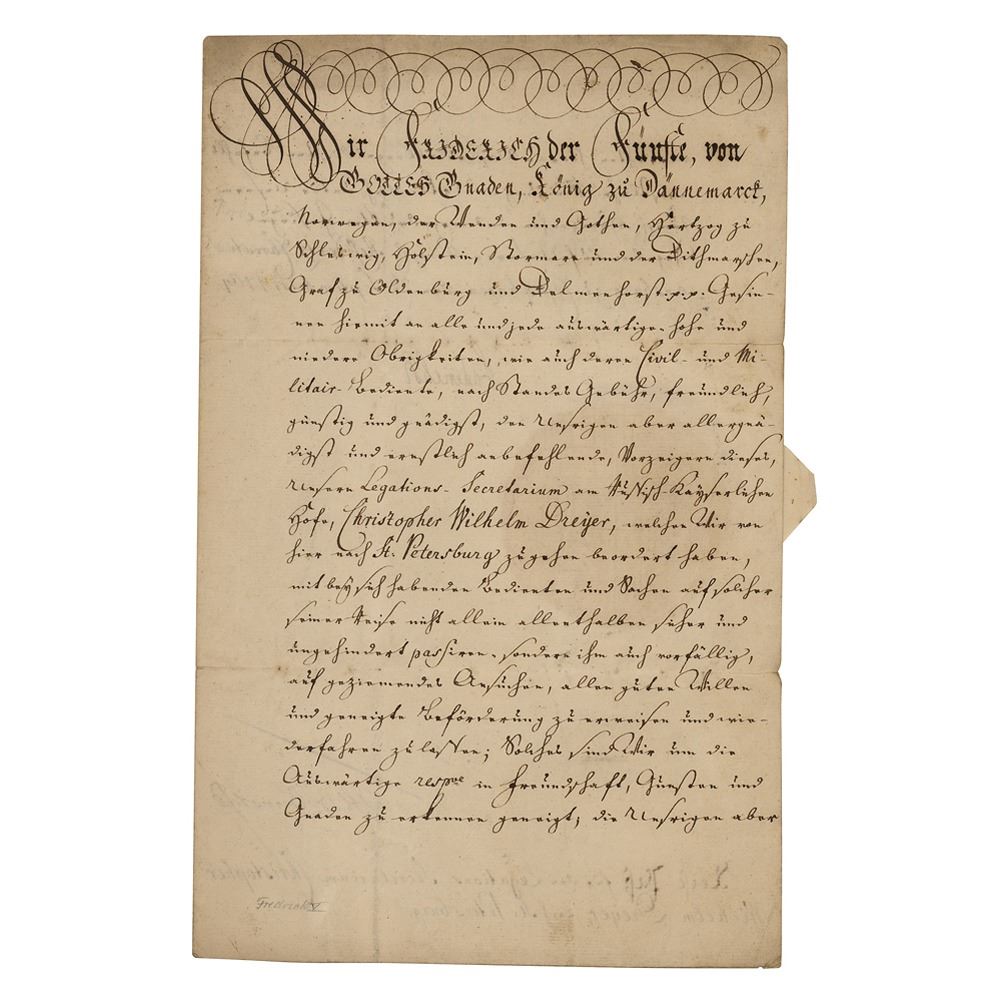 Wir FRIDERICH der Fünfte, von
GOTTES Gnaden, König zu Dännemarck,
Norwegen, der Wenden und Gothen, Hertzog zu
Schleswig, Holstein, Stormarn und der Dithmarschen,
Graf zu Oldenburg und Delmenhorst p.p. Gesin-
nen hiemit an alle und jede auswärtige hohe und
niedere Obrigkeiten, wie auch deren Civil- und Mi-
litair-Bediente, nach Standes Gebühr, freundlich,
günstig und gnädigst, den Unsrigen aber allergnä-
digst und ernstlich anbefehlende, Vorzeigern dieses,
Unsern Legations-Secretarium am Russisch-Kayserlichen
Hofe, Christopher Wilhelm Dreyer, welchen Wir von
hier nach St. Petersburg zugehen beordert haben,
mit bey sich habenden Bedienten und Sachen auf solcher
seiner Reise nicht allein allenthalben sicher und
ungehindert passiren, sondern ihm auch vorfällig,
auf geziemendes Ansuchen, allen guten Willen
und geneigte Beförderung zu erweisen und wie-
derfahren zu lassen; Solches sind Wir um die
Auswärtige respve in Freundschaft, Gunsten und
Gnaden zu erkennen geneigt; die Unsrigen aber
Frederick V